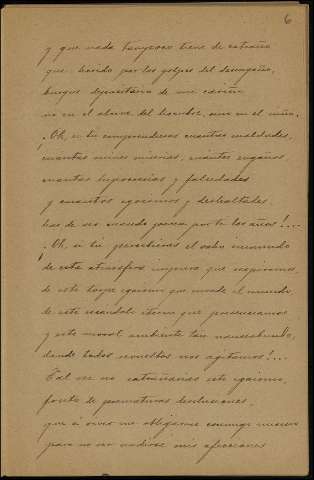 6
y que nada tampoco tiene de extraño
que, herido por los golpes del desengaño,
busque depositaria de mi cariño
no en el alma del hombre, sino en el niño.
¡Oh, si tu comprendieras cuantas maldades,
cuantas ruines miserias, cuantos engaños,
cuantas hipocresías y falsedades
y cuantos egoismos y deslealtades
has de ver cuando pasen por ti los años!...
¡Oh, si tú percibieras el vaho inmundo
de esta atmósfera impura que respiramos,
de este torpe egoismo que invade el mundo,
de este escándalo eterno que presenciamos
y este moral ambiente tan nauseabundo,
donde todos revueltos nos agitamos!...
Tal vez no extrañarías este egoismo,
fruto de prematuras desilusiones,
que á vivir me obliga conmigo mismo
para no ver mis afecciones